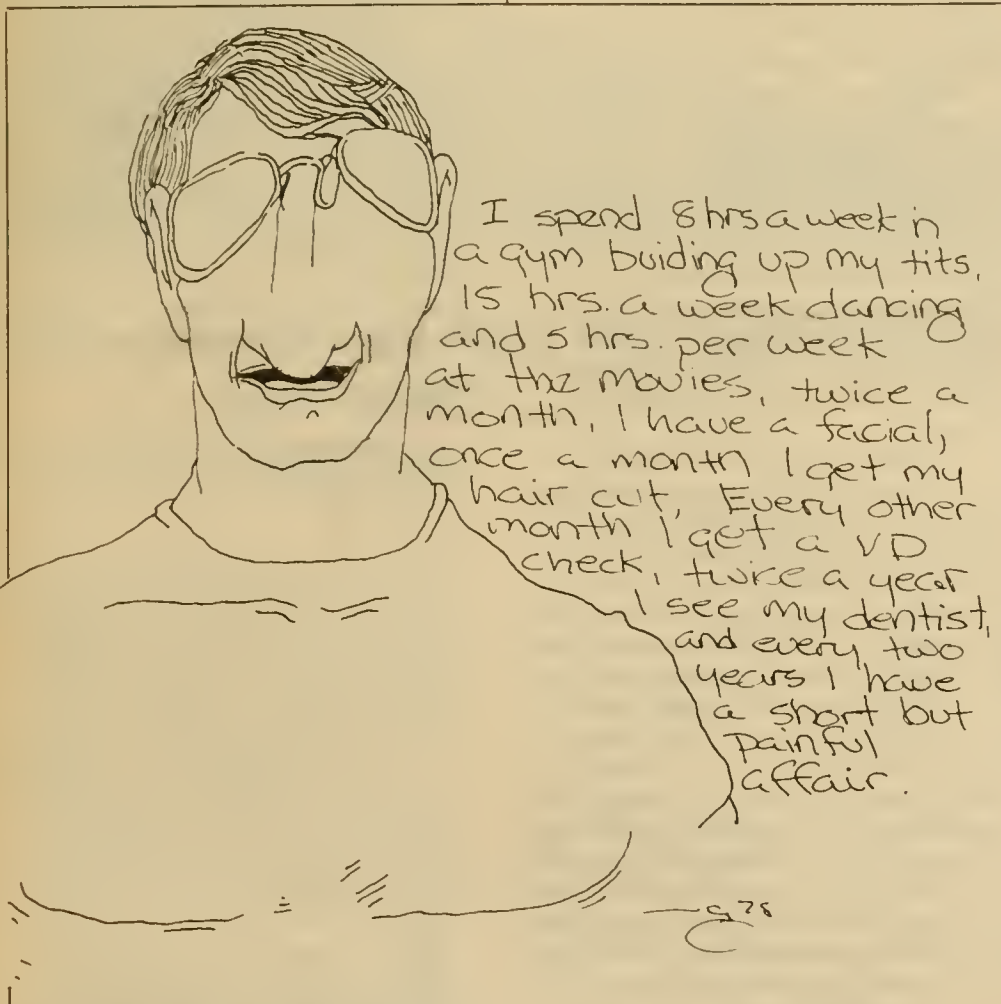 I spend 8 hrs a week in
a gym buiding up my tits,
15 hrs. a week dancing
and 5 hrs. per week
at the movies, twice a
month, I have a facial,
once a month I get my
hair cut, Every other
month I get a VD
check, twice a year
I see my dentist,
and every two
years I have
a short but
painful
affair.
78